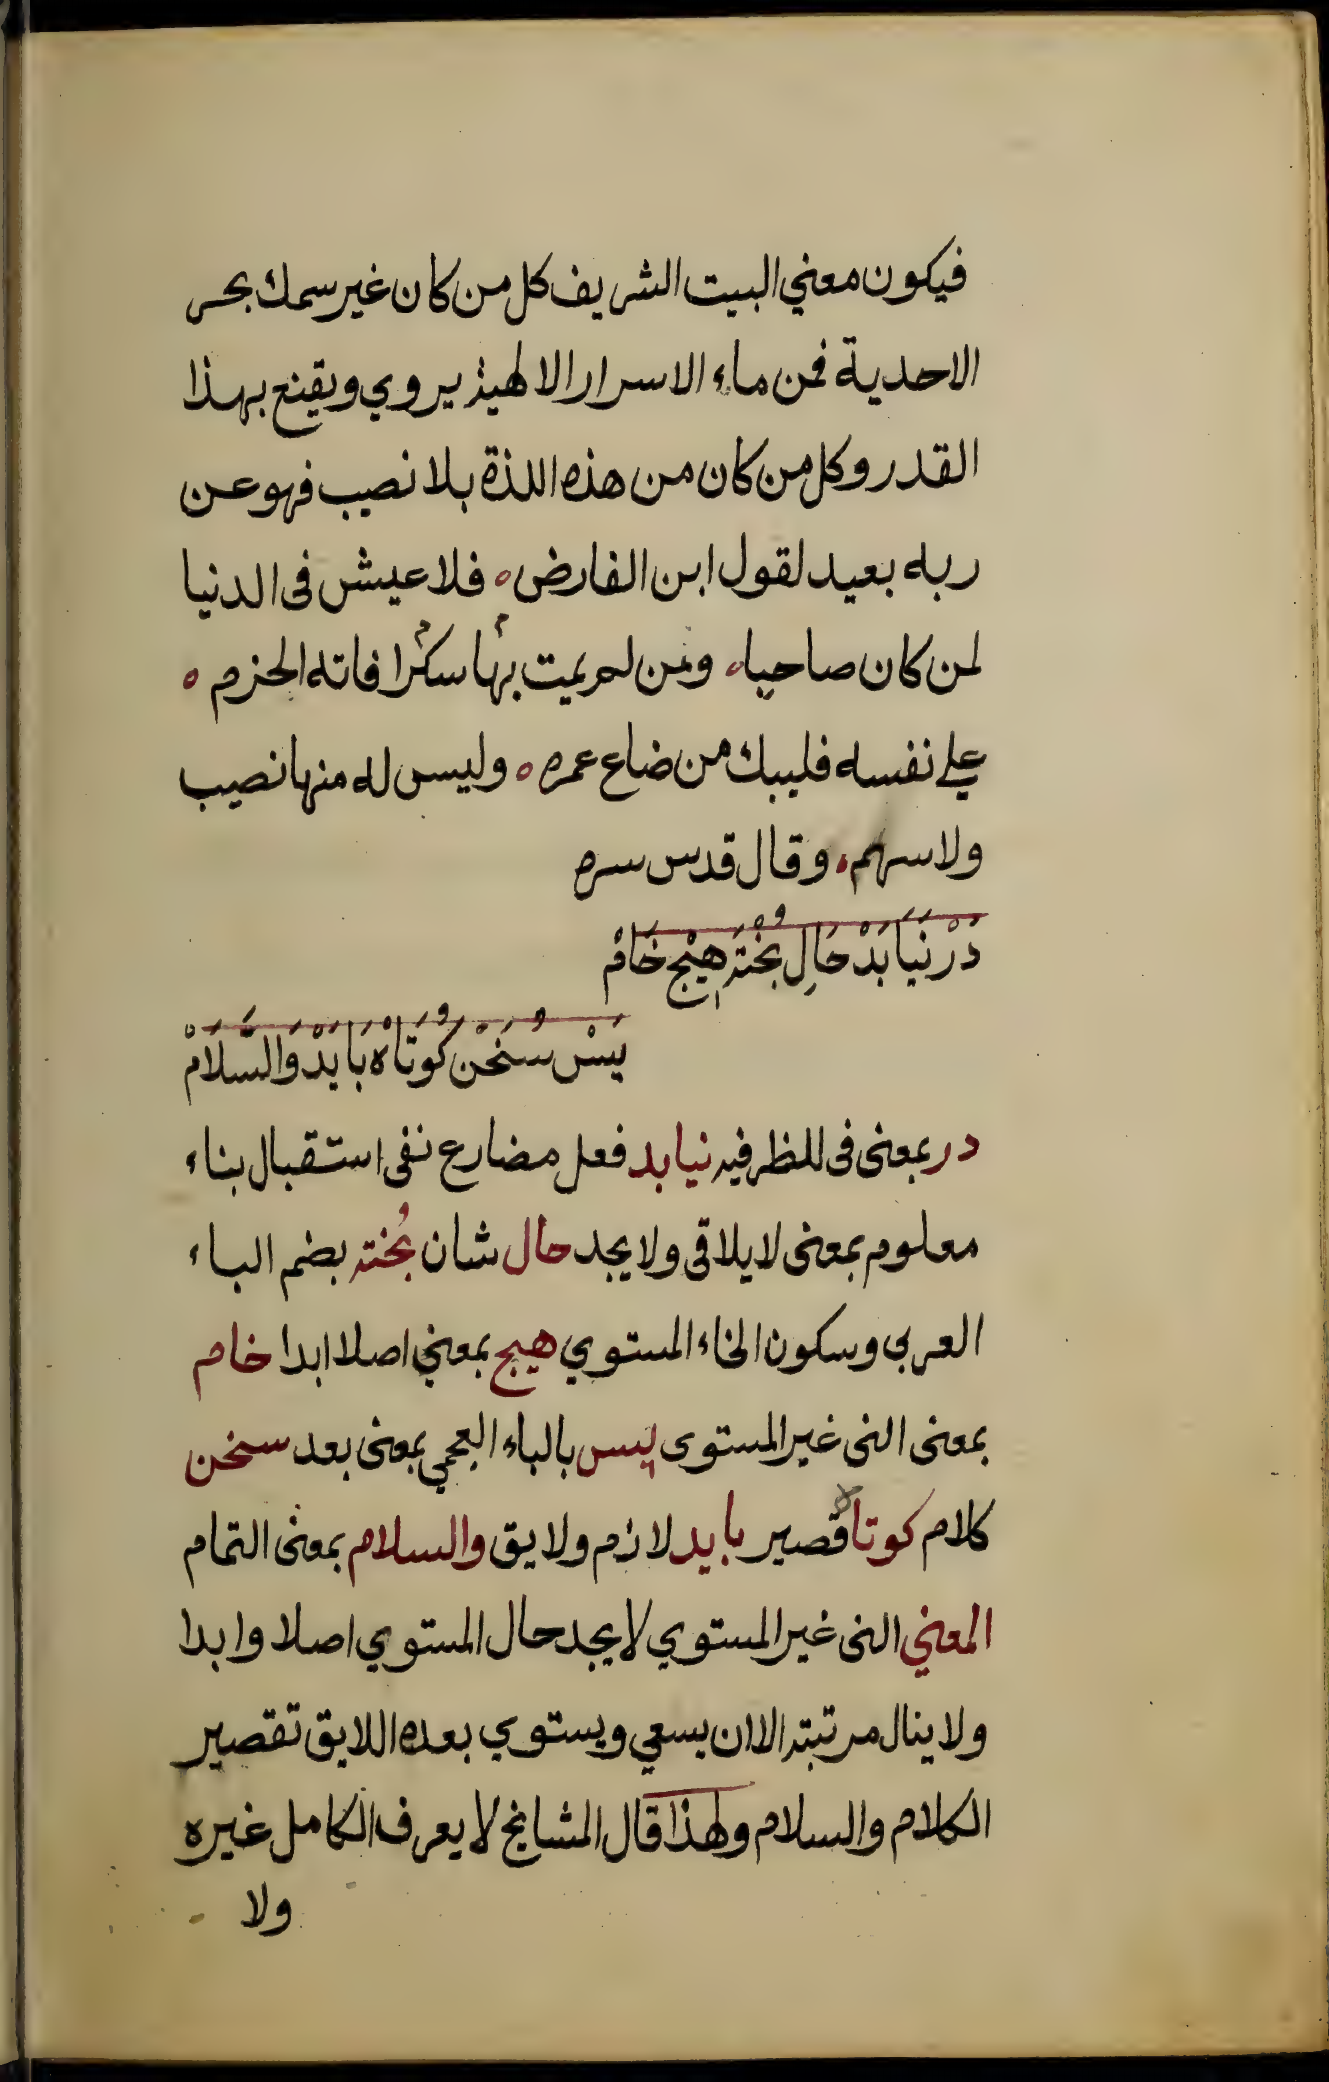 فيكون معني البيت الشريف كل من كان غير سمك بحر
الاحدية فمن ماء الاسرار الالهية يروي ويقنع بهذا
القدر وكل من كان من هذه اللذة بلا نصيب فهو عن
ربه بعيد لقول ابن الفارض ه فلا عيش فى الدنيا
لمن كان صاحيا ه ومن لم يمت بها سكرا فاته الحزم ه
علي نفسه فليبك من ضاع عمره ه وليس له منها نصيب
ولا سهم ه وقال قدس سره
دَرْ نَيَابَدْ حَالِ بُخْتَه هِيْج خَامْ
بَسْ سُخَنْ كُوتَاهْ بَايَدْ وَالسَّلَامْ
در بمعنى فى للظرفيه نيابد فعل مضارع نفى استقبال بناء
معلوم بمعنى لا يلاقى ولا يجد حال شان بُخته بضم الباء
العربى وسكون الخاء المستوي هيج بمعني اصلا ابدا خام
بمعنى النى غير المستوى پس بالباء العجمي بمعنى بعد سخن
كلام كوتاه قصير بايد لازم ولايق والسلام بمعنى التمام
المعني النى غير المستوي لا يجد حال المستوي اصلا وابدا
ولا ينال مرتبته الا ان يسعي ويستوي بعده اللايق تقصير
الكلام والسلام ولهذا قال المشايخ لا يعرف الكامل غيره
ولا